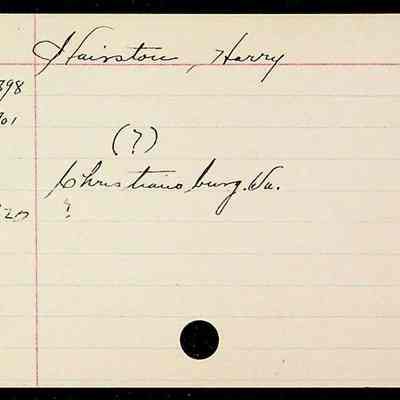 Hairston, Harry
898
901
(?)
Christiansburg, Va.
?